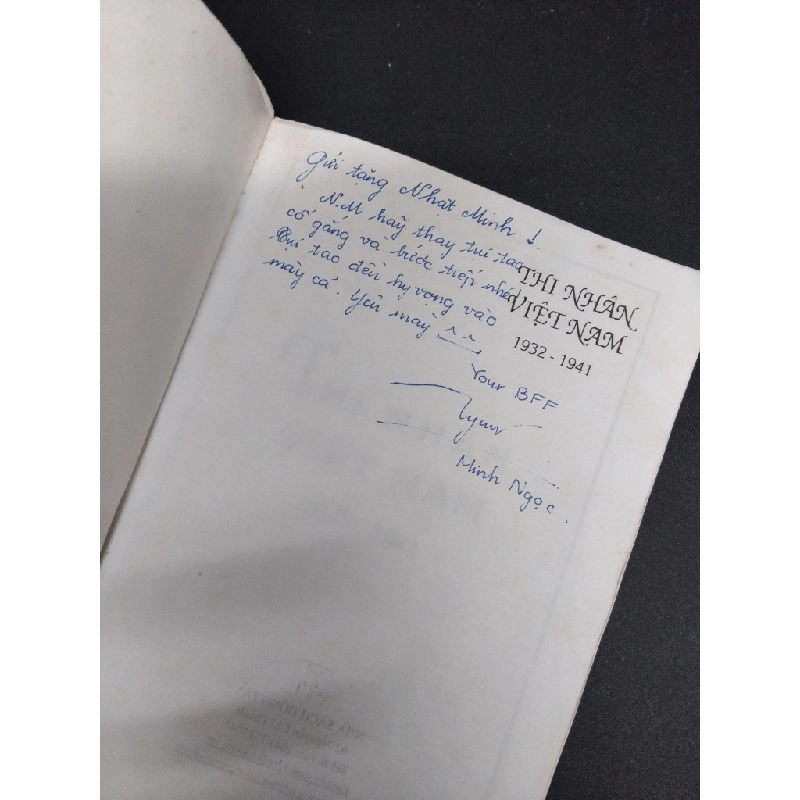 Gửi tặng Nhật Minh !
N.M hãy thay tụi tao
cố gắng và bước tiếp nhé!
Tụi tao đều hy vọng vào
mày cả. Yêu mày ^^
THI NHÂN
VIỆT NAM
1932 - 1941
Your BFF
Minh Ngọc.